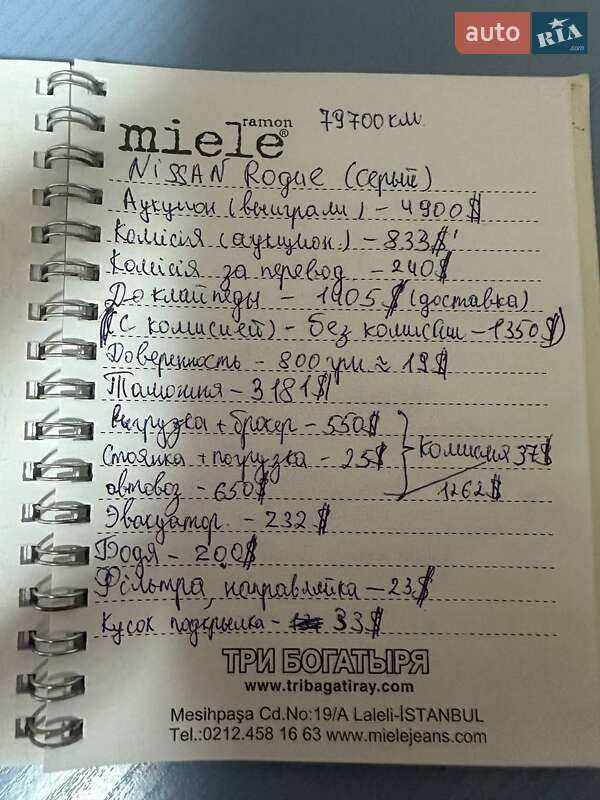 auto RIA .com
79700км.
ramon
miele®
NiSSAN Rogue (серый)
Аукцион (выиграли) - 4900$
Комісія (аукцион.) - 833$
Комісія за перевод - 240$
До клайпеды - 1405$ (доставка)
(С комисией) - без комиссии - 1350$)
Доверенность - 800грн ≈ 19$
Таможня - 3181$
Выгрузка + брокер - 550$
Стоянка + погрузка - 25$ } Комиссия 37$
автовоз - 650$ 1262$
Эвакуатор. - 232$
Бодя - 200$
Фільтра, направляйка - 23$
Кусок подкрылка - 33$
ТРИ БОГАТЫРЯ
www.tribagatiray.com
Mesihpaşa Cd.No:19/A Laleli-İSTANBUL
Tel.:0212.458 16 63 www.mielejeans.com